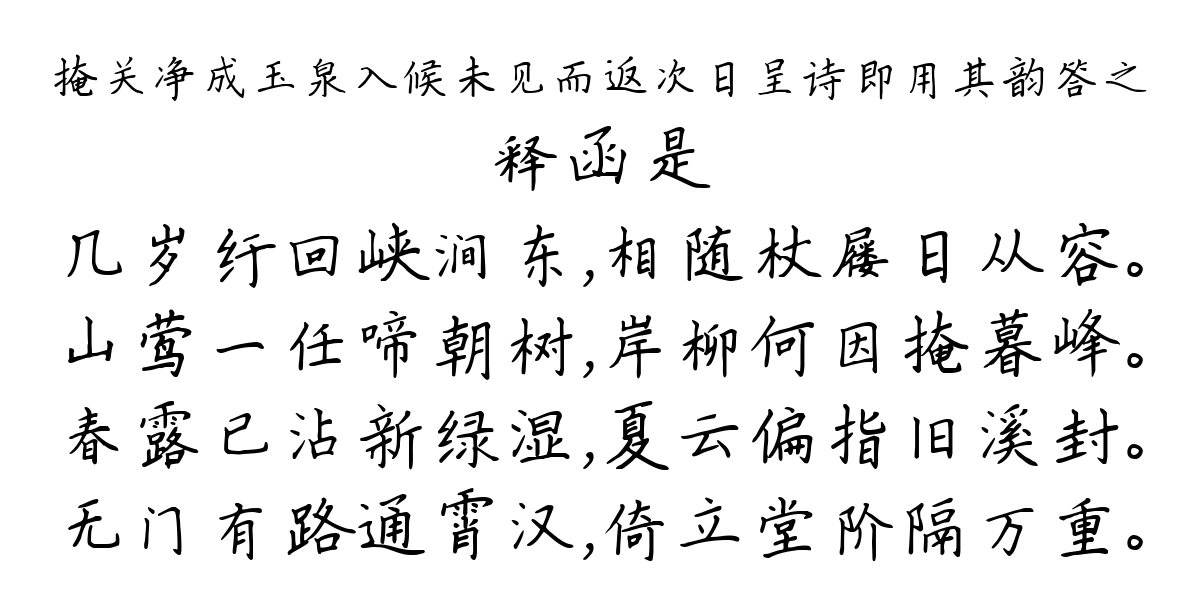 掩关净成玉泉入候未见而返次日呈诗即用其韵答之
释函是
几岁纡回峡涧东,相随杖屦日从容。
山莺一任啼朝树,岸柳何因掩暮峰。
春露已沾新绿湿,夏云偏指旧溪封。
无门有路通霄汉,倚立堂阶隔万重。